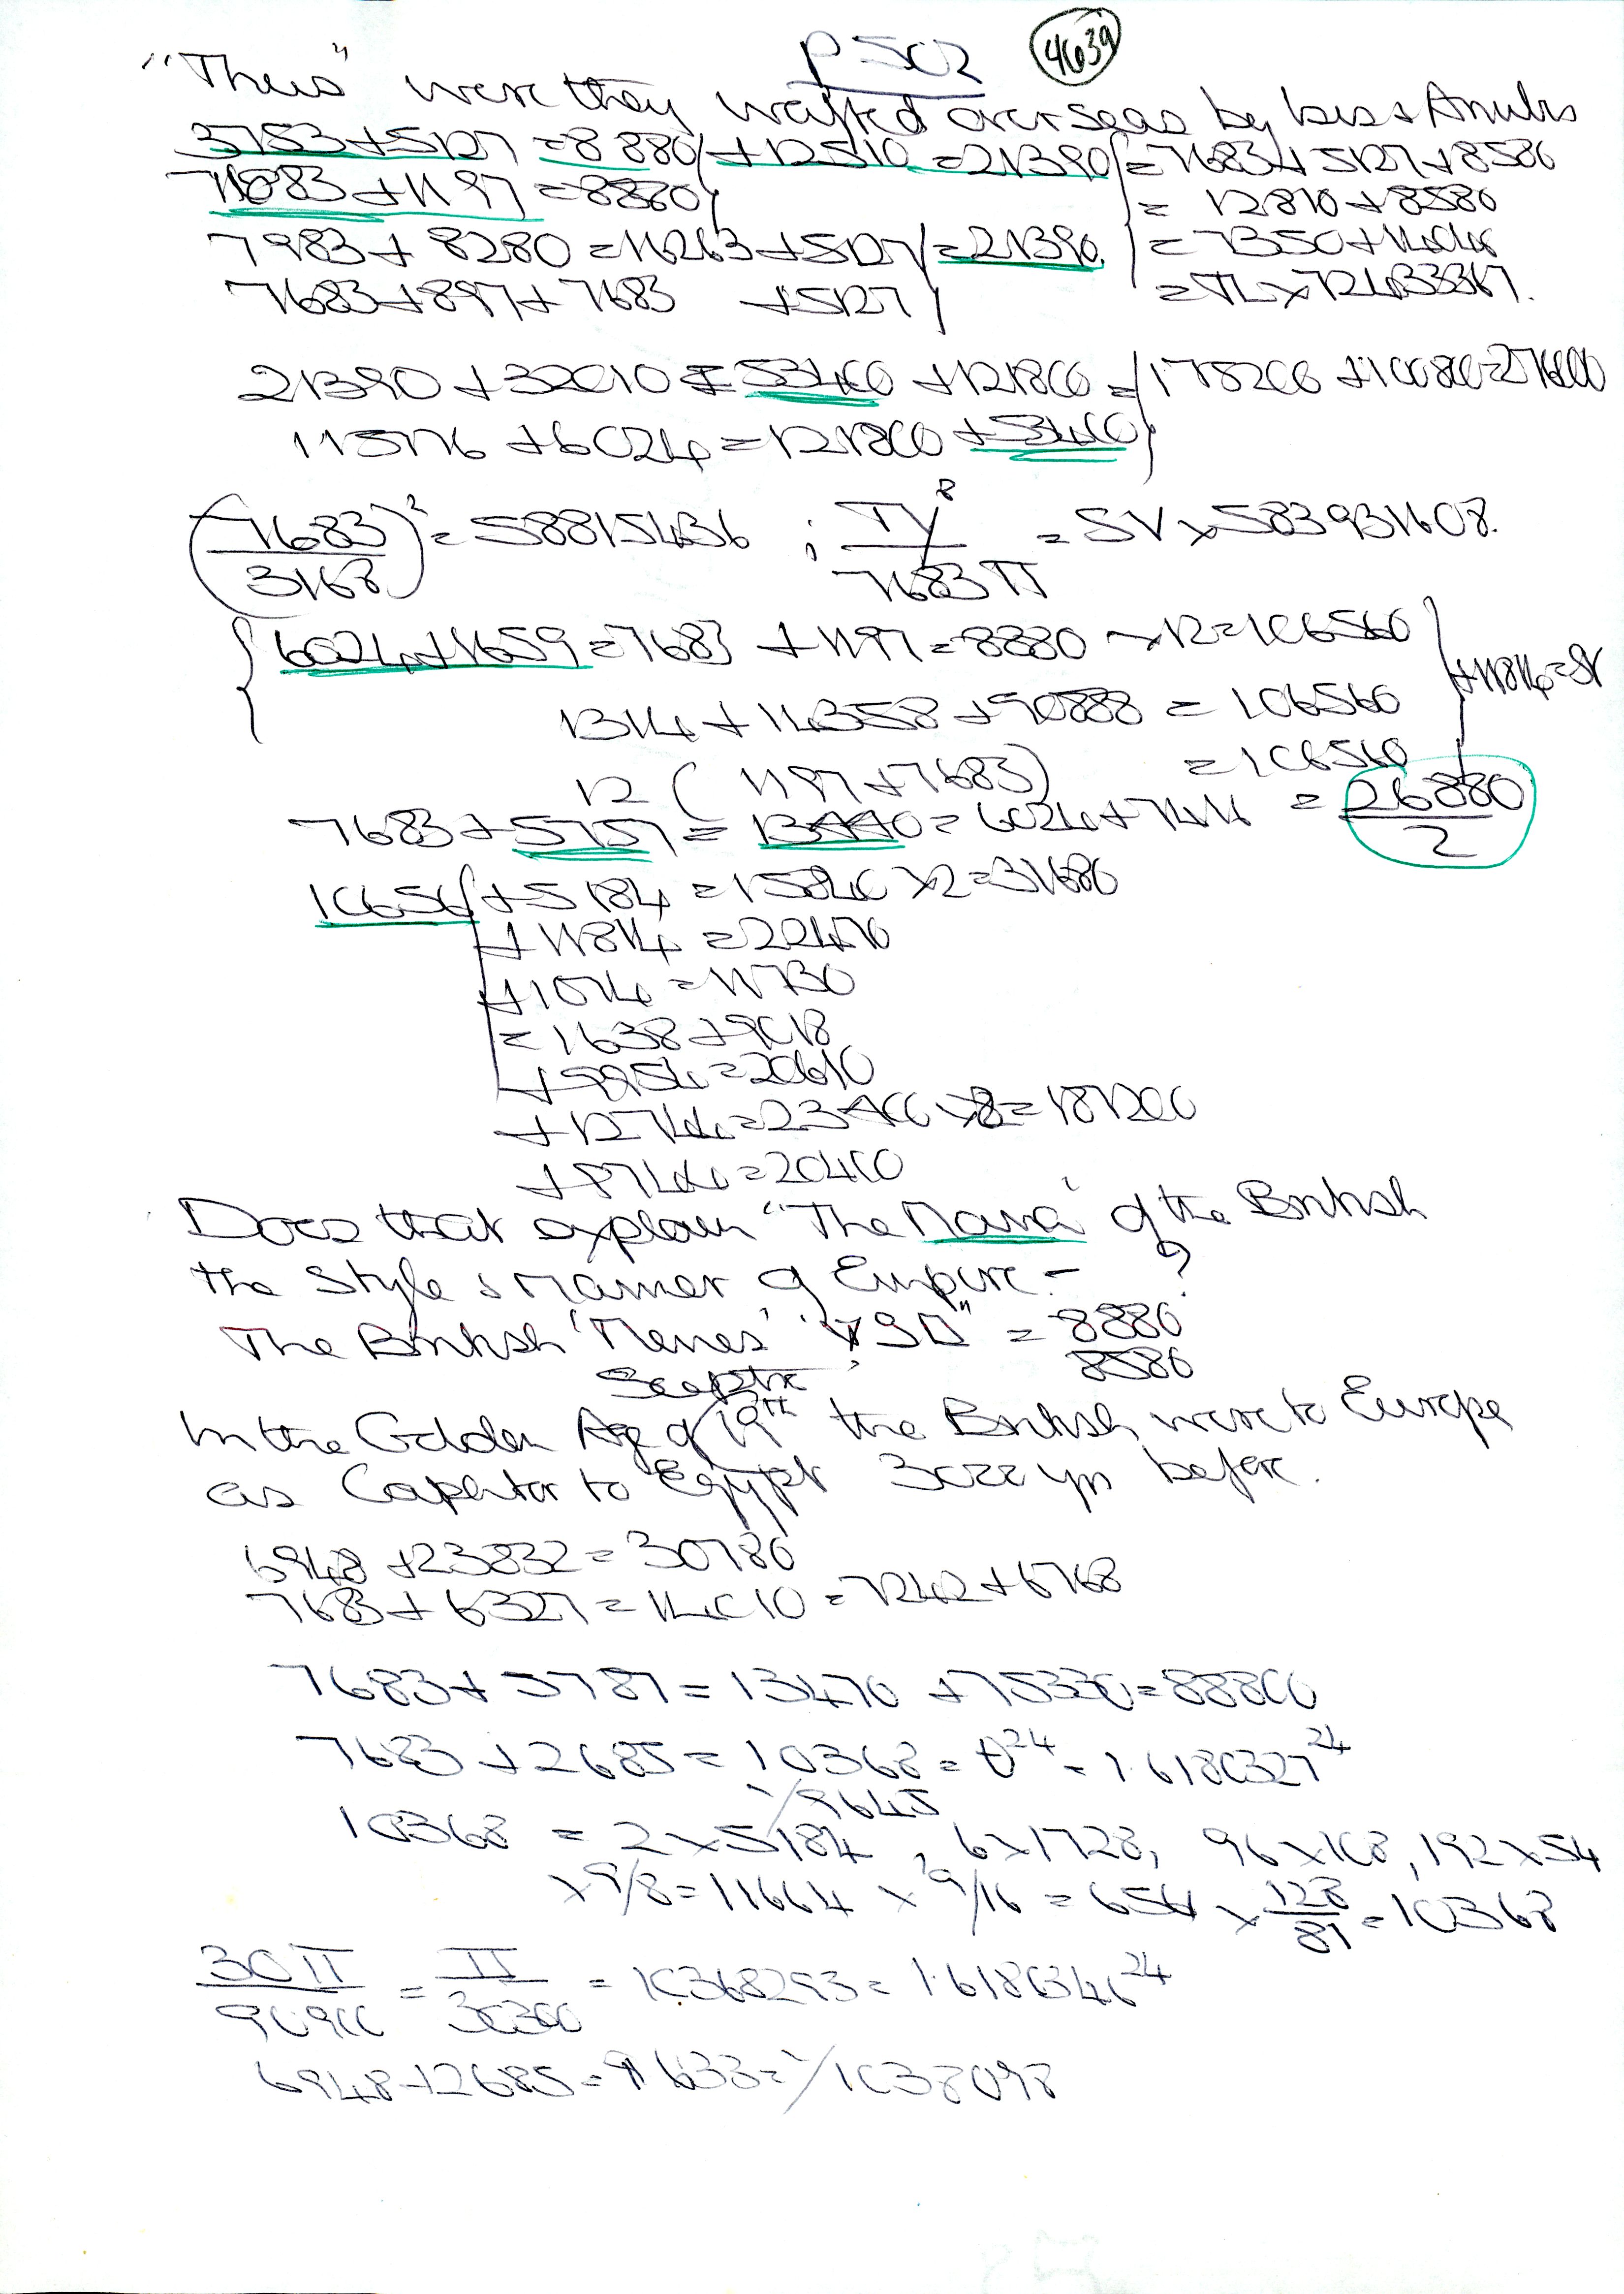 P 502 4639
"Thus" were they wafted overseas by Isis & Anubis
3753+5127 =8880 +12510 =21390 =7683+5127+8580
7683+1197 =8880 = 12810+8580
7983+ 8280 =16263+5127 =21390 =7350+14040
7683+897+7683 +5127
21390+32010 = 53400 +121800 = 175200 +100800=276000
115776 +6024=121800 +53400
(7683/3168)² = 588154636 ; /7683π = SV×583931608.
6024+1659=7683 +1197=8880 ×12=106560
1314+14358+90888 = 106560 +11814=
12 (1197+7683) =106560
7683+5757 = 13440= 6024+7416 = 26880/2
10656 +5184 =15840 ×2=31680
+11814 =22470
+1074 =11730
= 1638+9018
+9954=20610
+12744=23400 ×8=187200
+9744=20400
Does that explain "The Mana" of the British
the Style & Manner of Empire - ?
The British "Menes" = 8880
Sceptre 8580
In the Golden Age of 19th the British were to Europe
as to Egypt yrs before.
6948 +23832=30780
7683+ 6327=14010 = 7242+6768
7683+5787=13470 +75330=88800
7683 +2685= 10368 = 1.6180327²⁴
1/9645
10368 = 2×5184, 6×1728, 96×108, 192×54
×9/8=11664 ×9/16 = 6561 × 128/81=10368
30π/90900 = π/30300 = 10368293= 1.6180340²⁴
6948+2685=9633=1/1038098